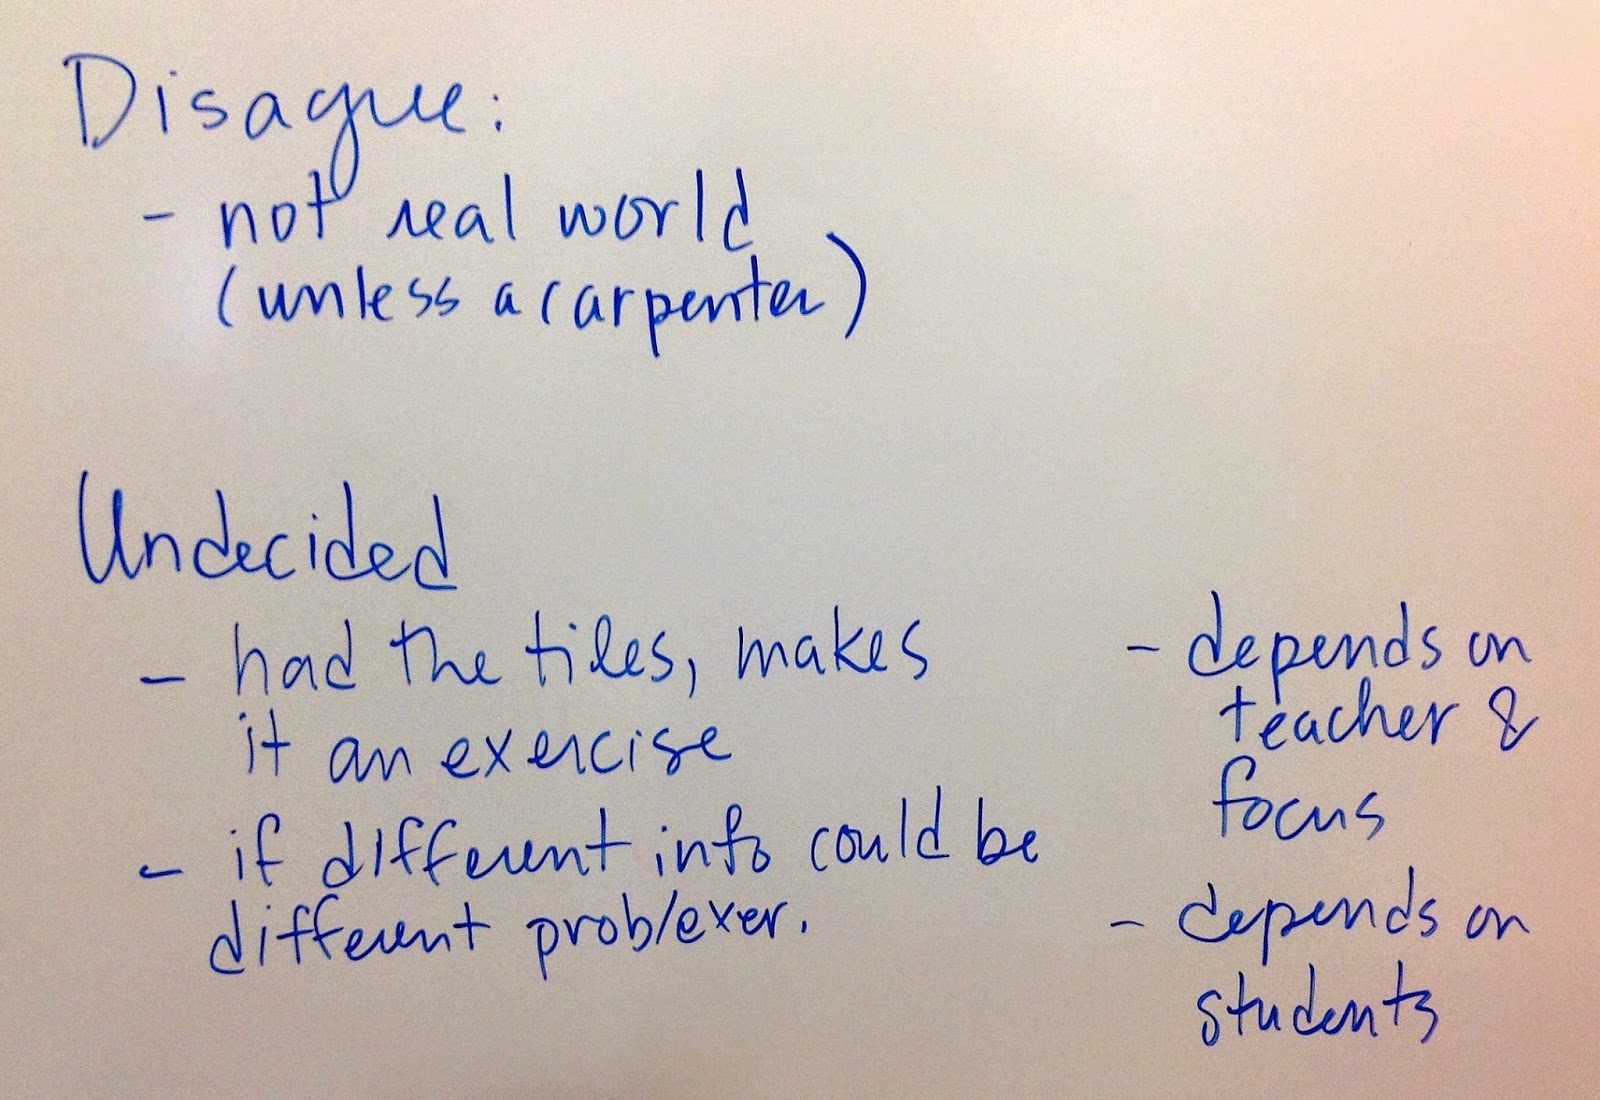 Disagree:
- not real world
(unless a carpenter)
Undecided
- had the tiles, makes
it an exercise
- if different info could be
different prob/exer.
- depends on
teacher &
focus
- depends on
students